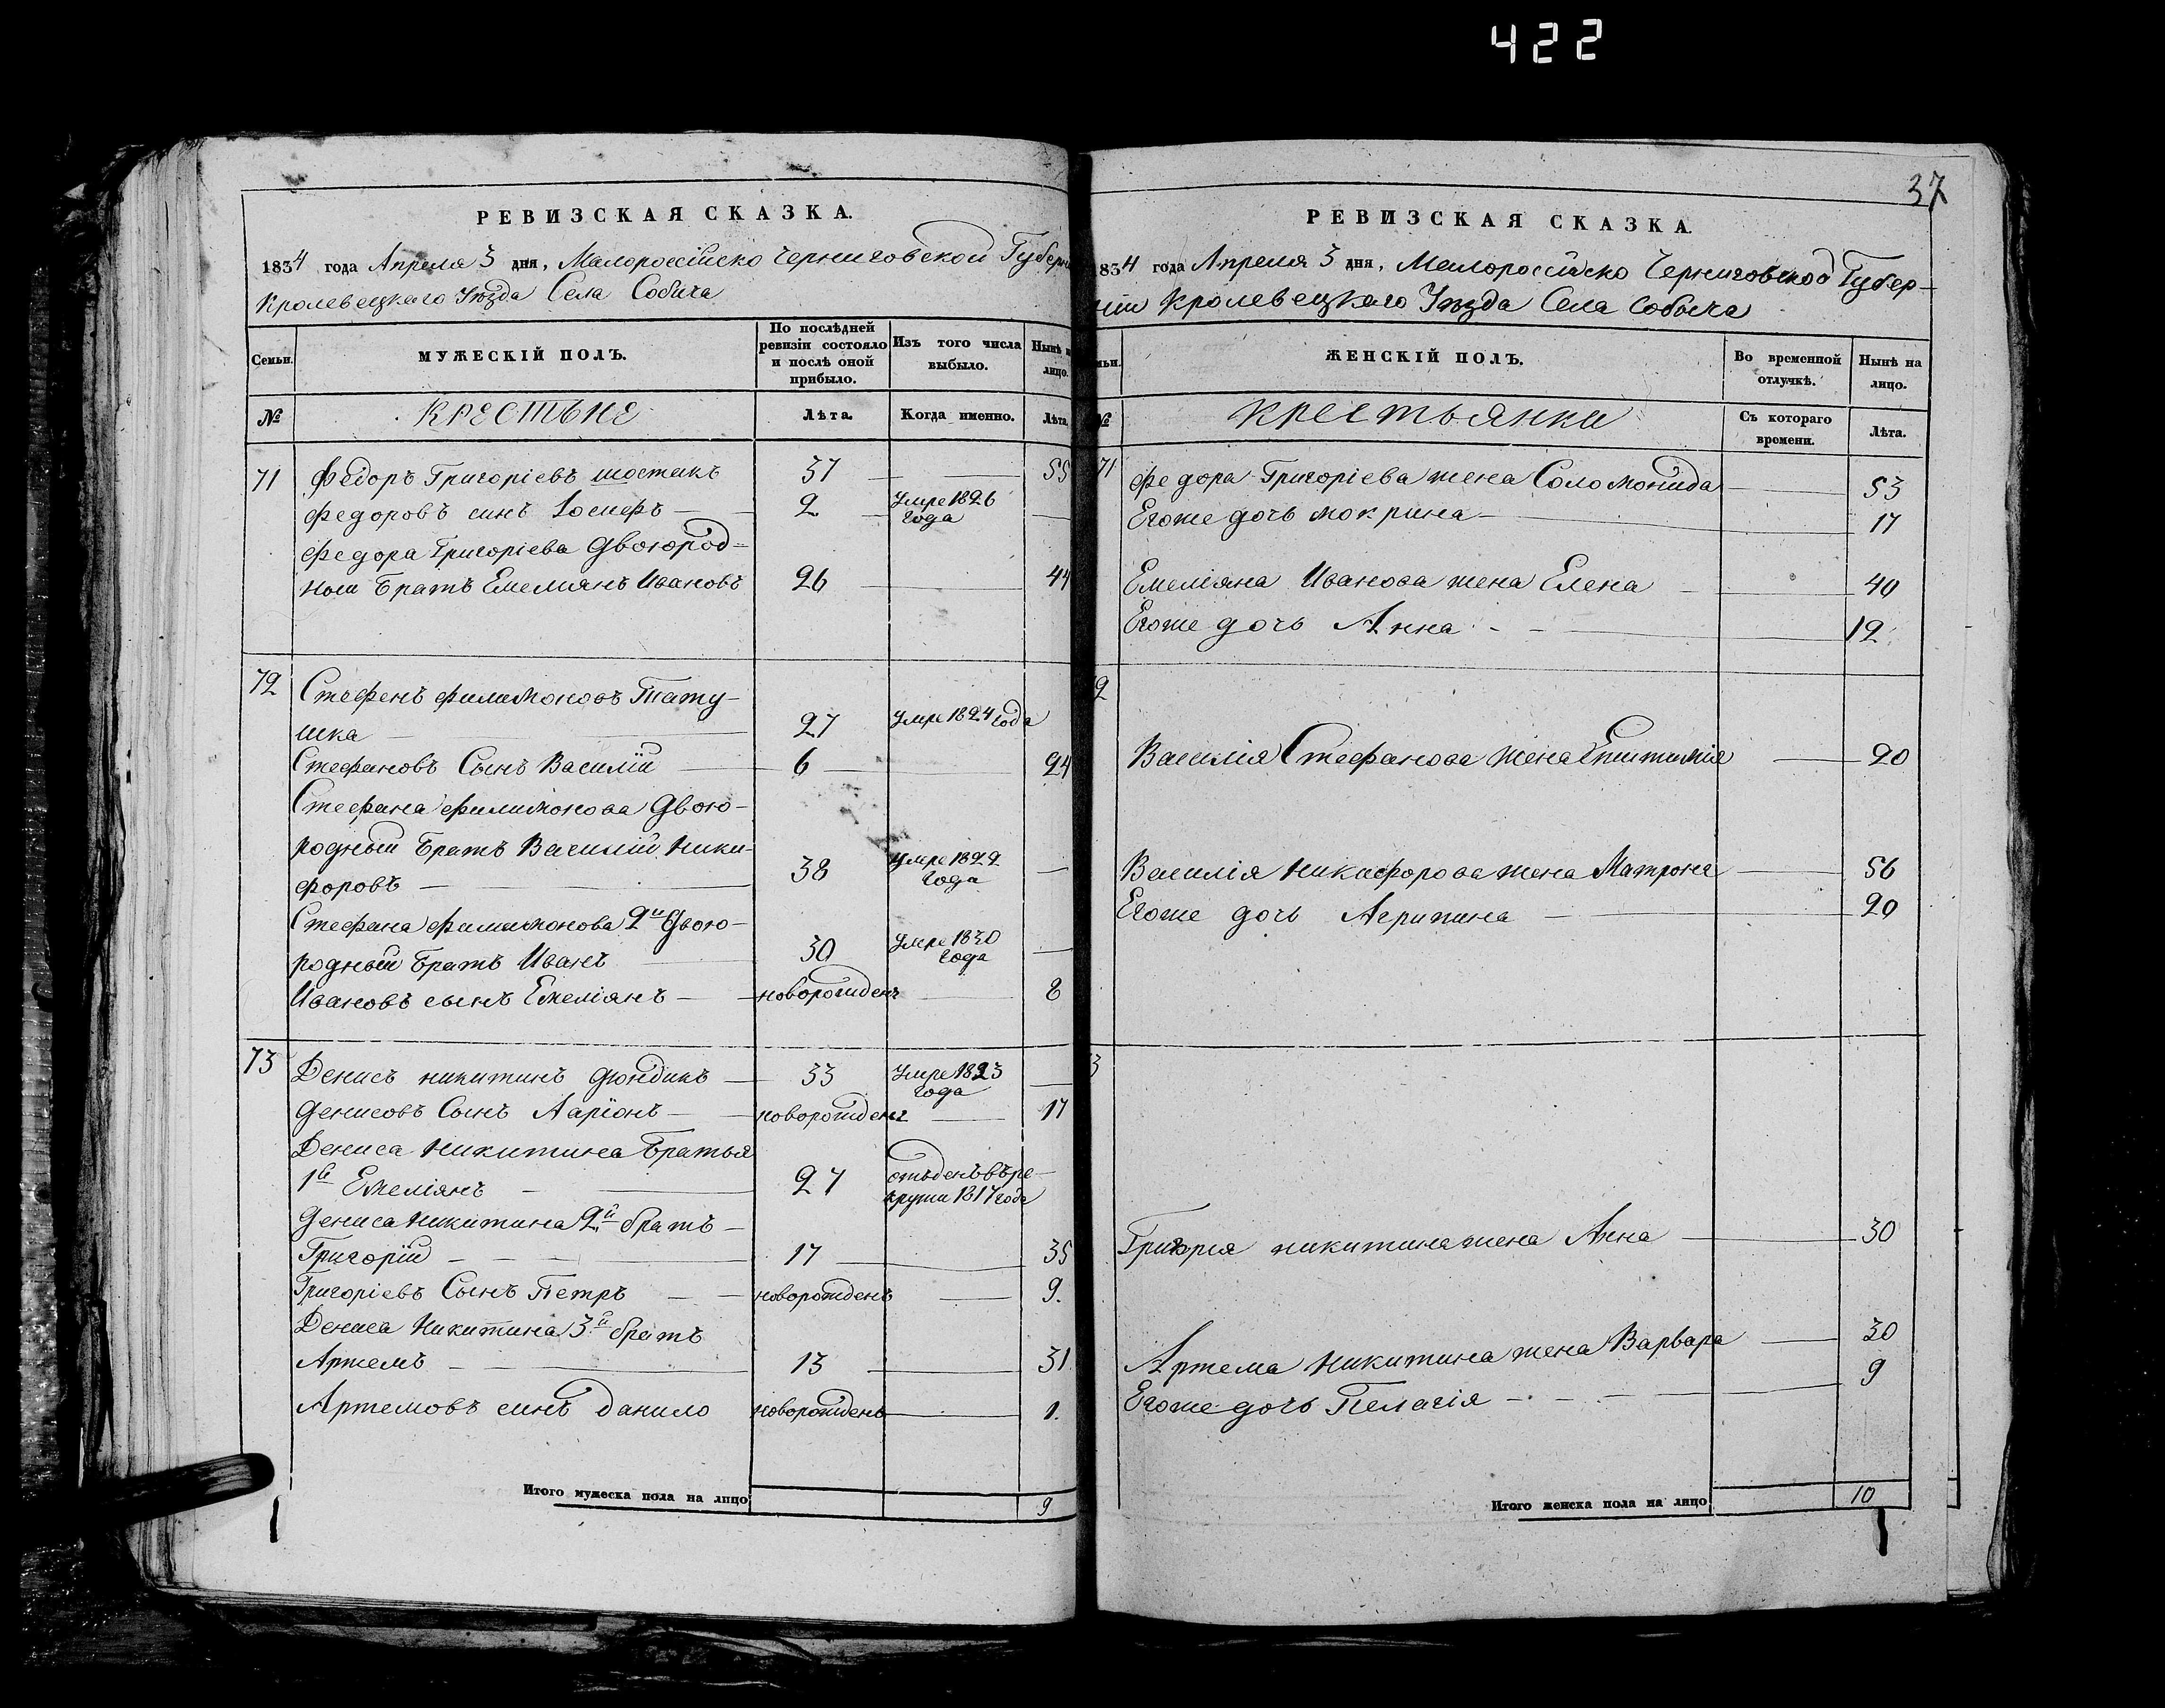 422
РЕВИЗСКАЯ СКАЗКА.
1834 года Апреля 3 дня, Малороссійско Черниговской Губерн
Кролевецкаго Уѣзда Села Собича
Семьи.
МУЖЕСКІЙ ПОЛЪ.
По послѣдней ревизіи состояло и послѣ оной прибыло.
Изъ того числа выбыло.
Нынѣ н лицо.
№
Крестьне
Лѣта.
Когда именно.
Лѣта.
71 Федоръ Григоріевъ шостакъ 37 55
Федоровъ синъ Іосифъ 2 Умре 1826 года
Федора Григоріева Двоюрод-
ной Братъ Емелиянъ Ивановъ 26 44
72 Стефенъ Филимоновъ Тату-
шка 27 Умре 1824 года
Стефановъ Сынъ Василій 6 24
Стефана Филимонова Двою-
родный Братъ Василій Ники-
форовъ 38 Умре 1829 года
Стефана Филимонова 2й Двою-
родный Братъ Иванъ 30 Умре 1830 года
Ивановъ сынъ Емеліянъ новорожденъ 8
73 Денисъ никитинъ Дюндикъ 33 Умре 1823 года
Денисовъ Сынъ Ларіонъ новорожденъ 17
Дениса Никитина Братья
1й Емеліянъ 27 отъденъ въ ре-
круты 1817 года
Дениса Никитина 2й братъ
Григорій 17 35
Григоріевъ Сынъ Петръ новорожденъ 9.
Дениса Никитина 3й братъ
Артемъ 13 31
Артемовъ синъ Данило новорожденъ 1.
Итого мужеска пола на лицо 9
37
РЕВИЗСКАЯ СКАЗКА.
834 года Апреля 3 дня, Малороссійско Черниговской Губер-
ніи Кролевецкаго Уѣзда Села Собыча
мьи.
ЖЕНСКІЙ ПОЛЪ.
Во временной отлучкѣ.
Нынѣ на лицо.
№
Крестьянки
Съ котораго времени.
Лѣта.
71 Федора Григоріева жена Соломонида 53
Егоже дочь мокрина 17
Емеліяна Иванова жена Елена 40
Егоже дочь Анна 12
2
Василія Стефанова жена Епитимія 20
Василія Никифорова жена Матрона 56
Егоже дочь Агрипина 20
3
Григорія никитина жена Анна 30
Артема Никитина жена Варвара 30
Егоже дочь Пелагія 9
Итого женска пола на лицо 10